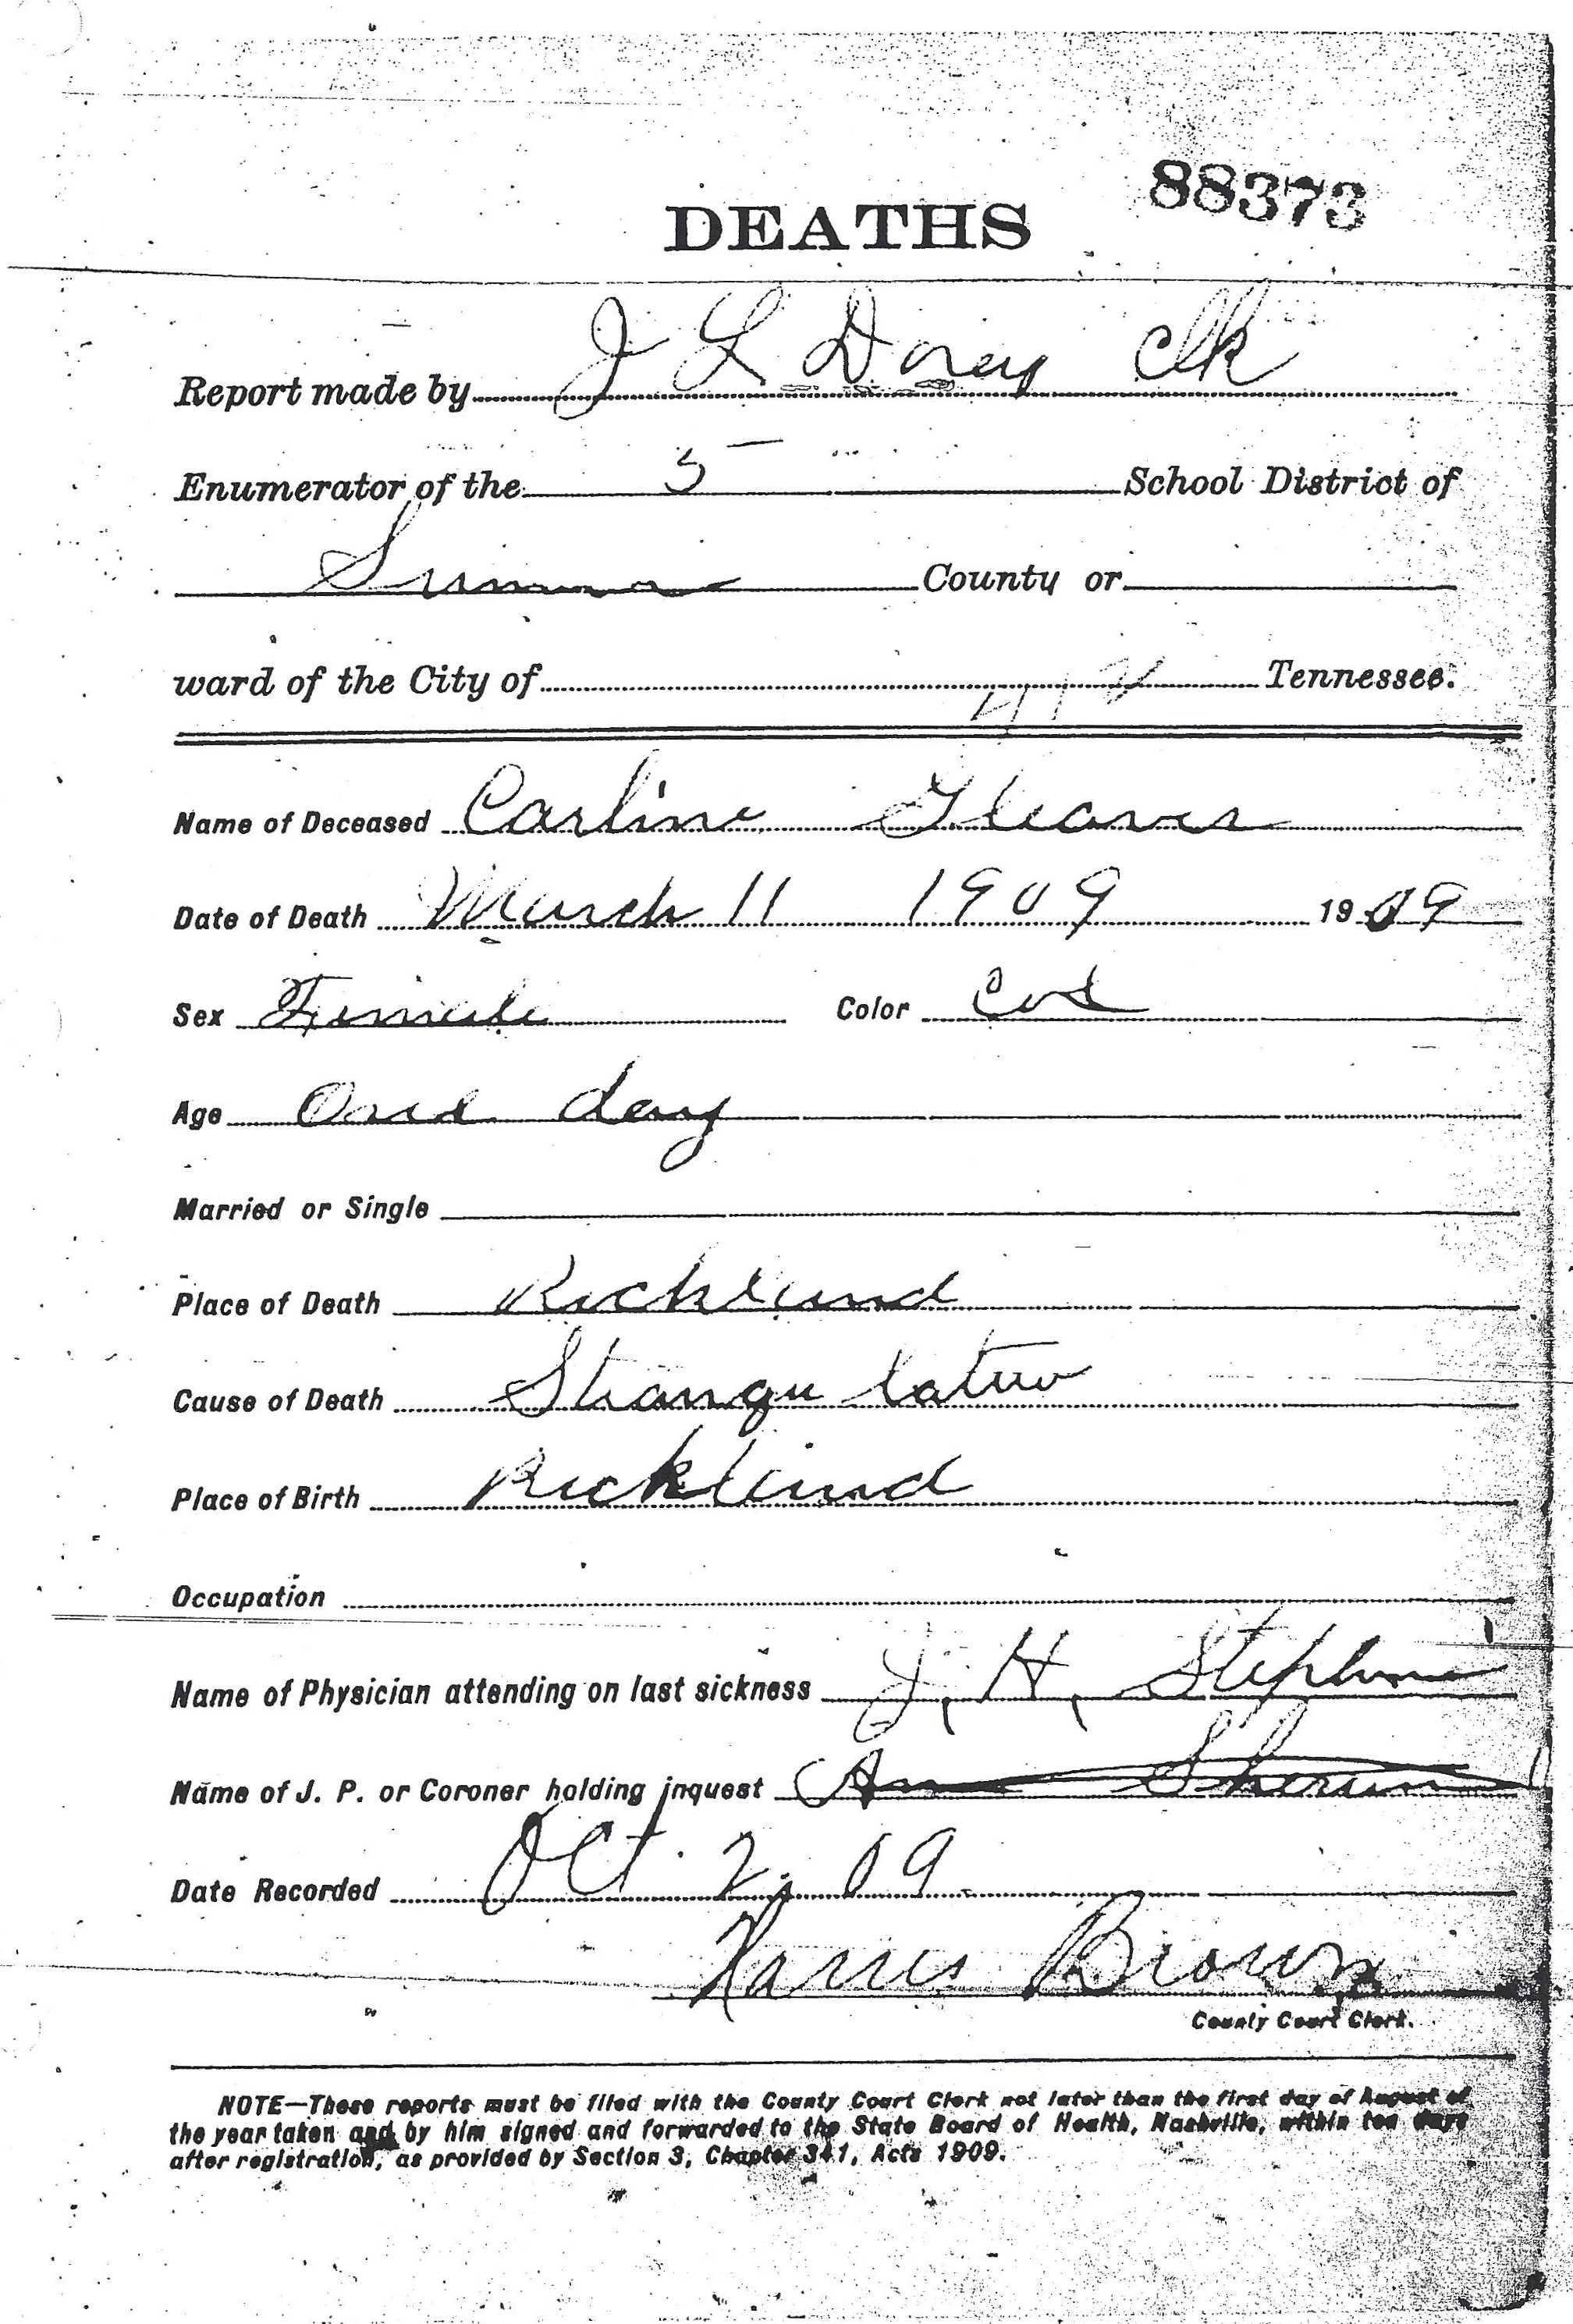 88373
DEATHS
Report made by J L Dorey Clk
Enumerator of the 5 School District of
Sumner County or
ward of the City of Tennessee.
Name of Deceased Carline Gleaves
Date of Death March 11 1909 1909
Sex Female Color Col
Age One day
Married or Single
Place of Death Richland
Cause of Death Strangulation
Place of Birth Richland
Occupation
Name of Physician attending on last sickness J. H. Stephens
Name of J. P. or Coroner holding inquest
Date Recorded Oct. 2, 09
Harris Brown
County Court Clerk.
NOTE—These reports must be filed with the County Court Clerk not later than the first day of August of
the year taken and by him signed and forwarded to the State Board of Health, Nashville, within ten days
after registration, as provided by Section 3, Chapter 341, Acts 1909.